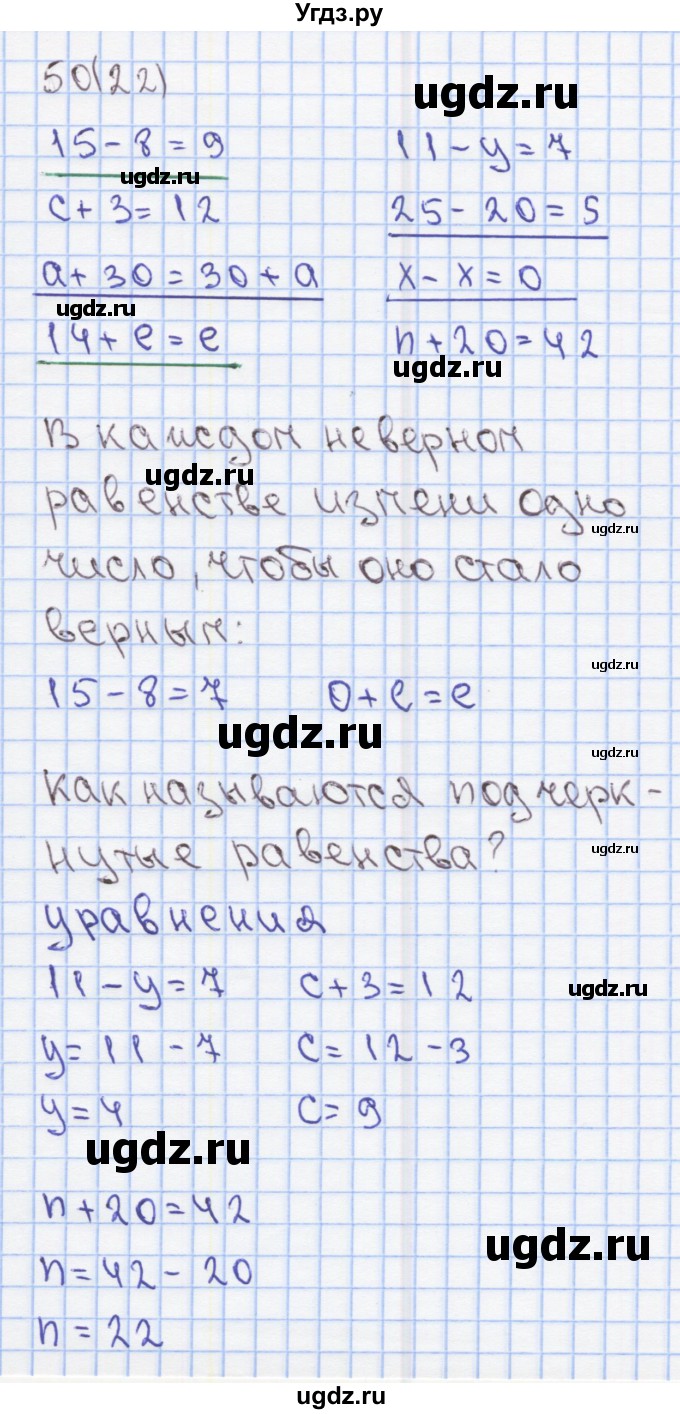 Угдз.ру
50(22)
ugdz.ru
15 - 8 = 9 11 - y = 7
ugdz.ru
c + 3 = 12 25 - 20 = 5
a + 30 = 30 + a x - x = 0
ugdz.ru
14 + e = e n + 20 = 42
ugdz.ru
В каждом неверном
ugdz.ru
равенстве измени одно
ugdz.ru
число, чтобы оно стало
верным:
ugdz.ru
15 - 8 = 7 0 + e = e
ugdz.ru
ugdz.ru
Как называются подчерк-
нутые равенства?
ugdz.ru
уравнения
11 - y = 7 c + 3 = 12
ugdz.ru
y = 11 - 7 c = 12 - 3
y = 4 c = 9
ugdz.ru
n + 20 = 42
ugdz.ru
n = 42 - 20
n = 22
ugdz.ru